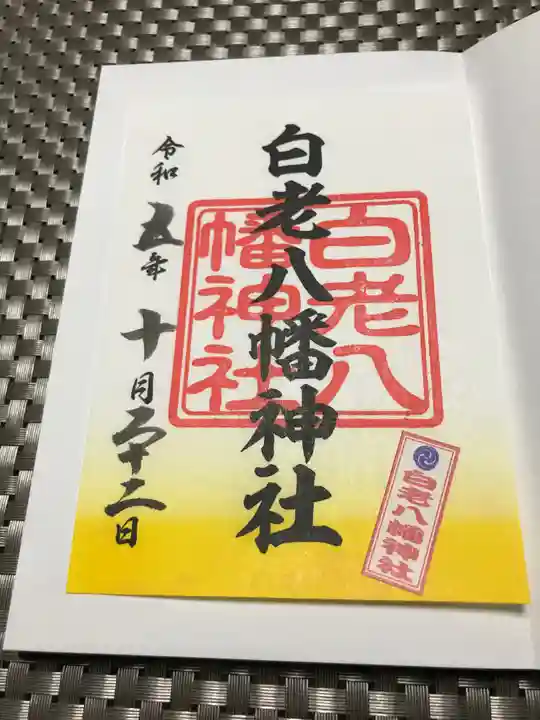 白老八幡神社
白老八幡神社
令和五年十月二十二日
白老八幡神社